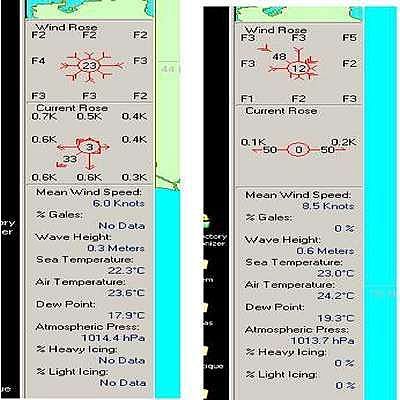 Wind Rose
F2 F2 F2
F4 23 F3
F3 F3 F2
Current Rose
0.7K 0.5K 0.4K
0.6K 3 0.4K
33
0.6K 0.6K 0.3K
Mean Wind Speed:
6.0 Knots
% Gales:
No Data
Wave Height:
0.3 Meters
Sea Temperature:
22.3°C
Air Temperature:
23.6°C
Dew Point:
17.9°C
Atmospheric Press:
1014.4 hPa
% Heavy Icing:
No Data
% Light Icing:
No Data
Wind Rose
F3 F3 F5
48
F3 12 F2
F1 F2 F2
Current Rose
0.1K 0.2K
50 0 50
Mean Wind Speed:
8.5 Knots
% Gales:
0 %
Wave Height:
0.6 Meters
Sea Temperature:
23.0°C
Air Temperature:
24.2°C
Dew Point:
19.3°C
Atmospheric Press:
1013.7 hPa
% Heavy Icing:
0 %
% Light Icing:
0 %